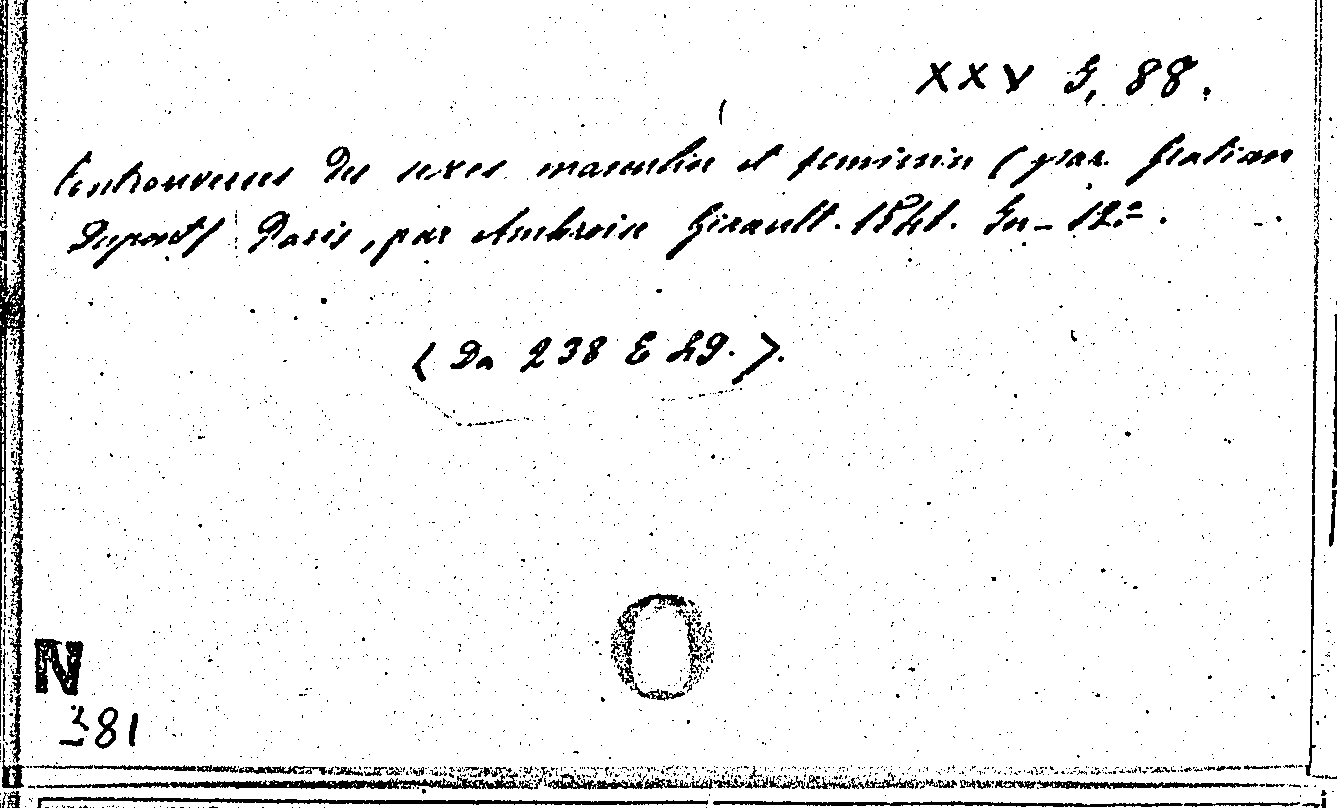 XXV G, 88.
Controverses des sexes masculin et feminin (par Gratian
Dupont) Paris, par Ambroise Girault. 1541. In-12º.
(Da 238 E 49.).
O
N
381